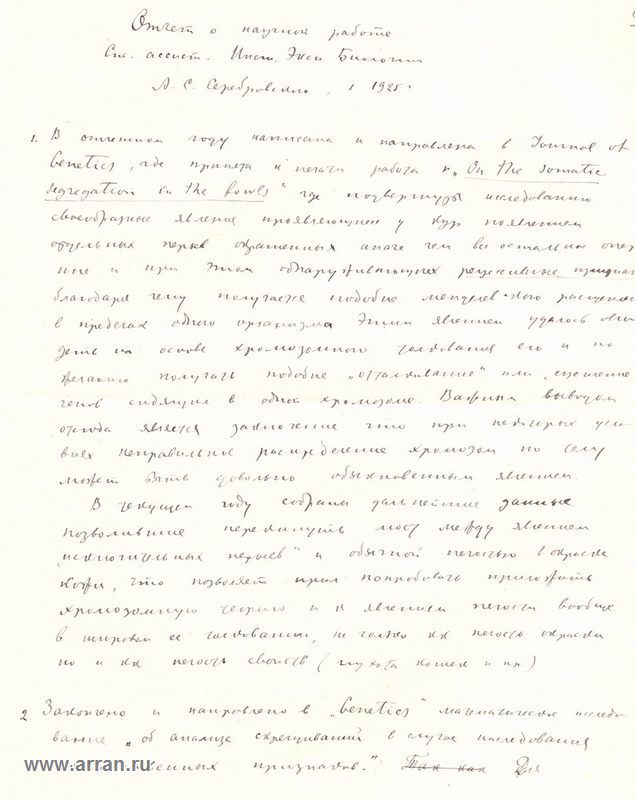 Отчет о научной работе
Ст. ассист. Инст. Эксп Биологии
А. С. Серебровского, 1925 г
1. В отчетном году написана и направлена в Journal of
Genetics, где принята к печати работа "On the somatic
segregation in the fowls" где подвергнуты исследованию
своеобразные явления проявляющиеся у кур появлением
отдельных перьев окрашенных иначе чем все остальное опер
ние и при этом обнаруживающих рецессивные признаки
благодаря чему получается подобие менделевского расщеплен
в пределах одного организма Этим явлением удалось овла
деть на основе хромозомного толкования его и по
желанию получать подобие "отталкивание" или сцепление
генов сидящих в одной хромозоме. Важным выводом
отсюда является заключение что при некоторых усло
виях неправильное распределение хромозом по телу
может быть довольно обыкновенным явлением.
В текущем году собраны дальнейшие данные
позволившие перекинуть мост между явлением
"исключительных перьев" и обычной пегостью в окраске
кожи, что позволяет при попробовать приложить
хромозомную теорию и к явлениям пегости вообще
в широком ее толковании, не только как пегость окраски
но и как пегость свойств (глухота кошек и пр.)
2 Закончено и направлено в "Genetics" математическое исследо
вание "об анализе скрещиваний в случае наследования
признаков." Так как Для
www.arran.ru